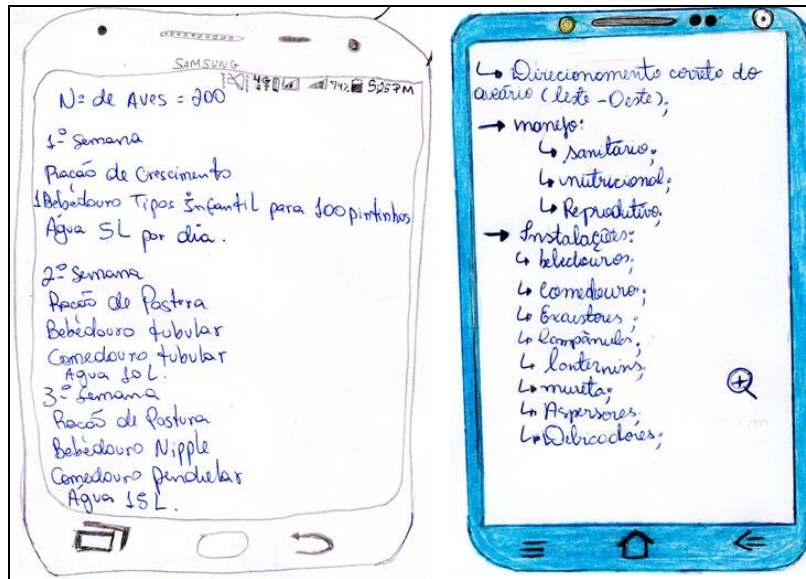 SAMSUNG
4G 74% 5:25 PM
Nº de Aves = 200
1º Semana
Ração de Crescimento
1 Bebedouro Tipos Infantil para 100 pintinhos
Água 5L por dia.
2º Semana
Ração de Postura
Bebedouro tubular
Comedouro tubular
Água 10L.
3º Semana
Ração de Postura
Bebedouro Nipple
Comedouro pendular
Água 15L.
↳ Direcionamento correto do
aveário (leste-Oeste);
→ manejo:
↳ sanitário;
↳ nutricional;
↳ Reprodutivo;
→ Instalações:
↳ bebedouros;
↳ comedouro;
↳ Exaustores;
↳ Campânulas;
↳ lanternins;
↳ mureta;
↳ Aspersores;
↳ Debicadores;